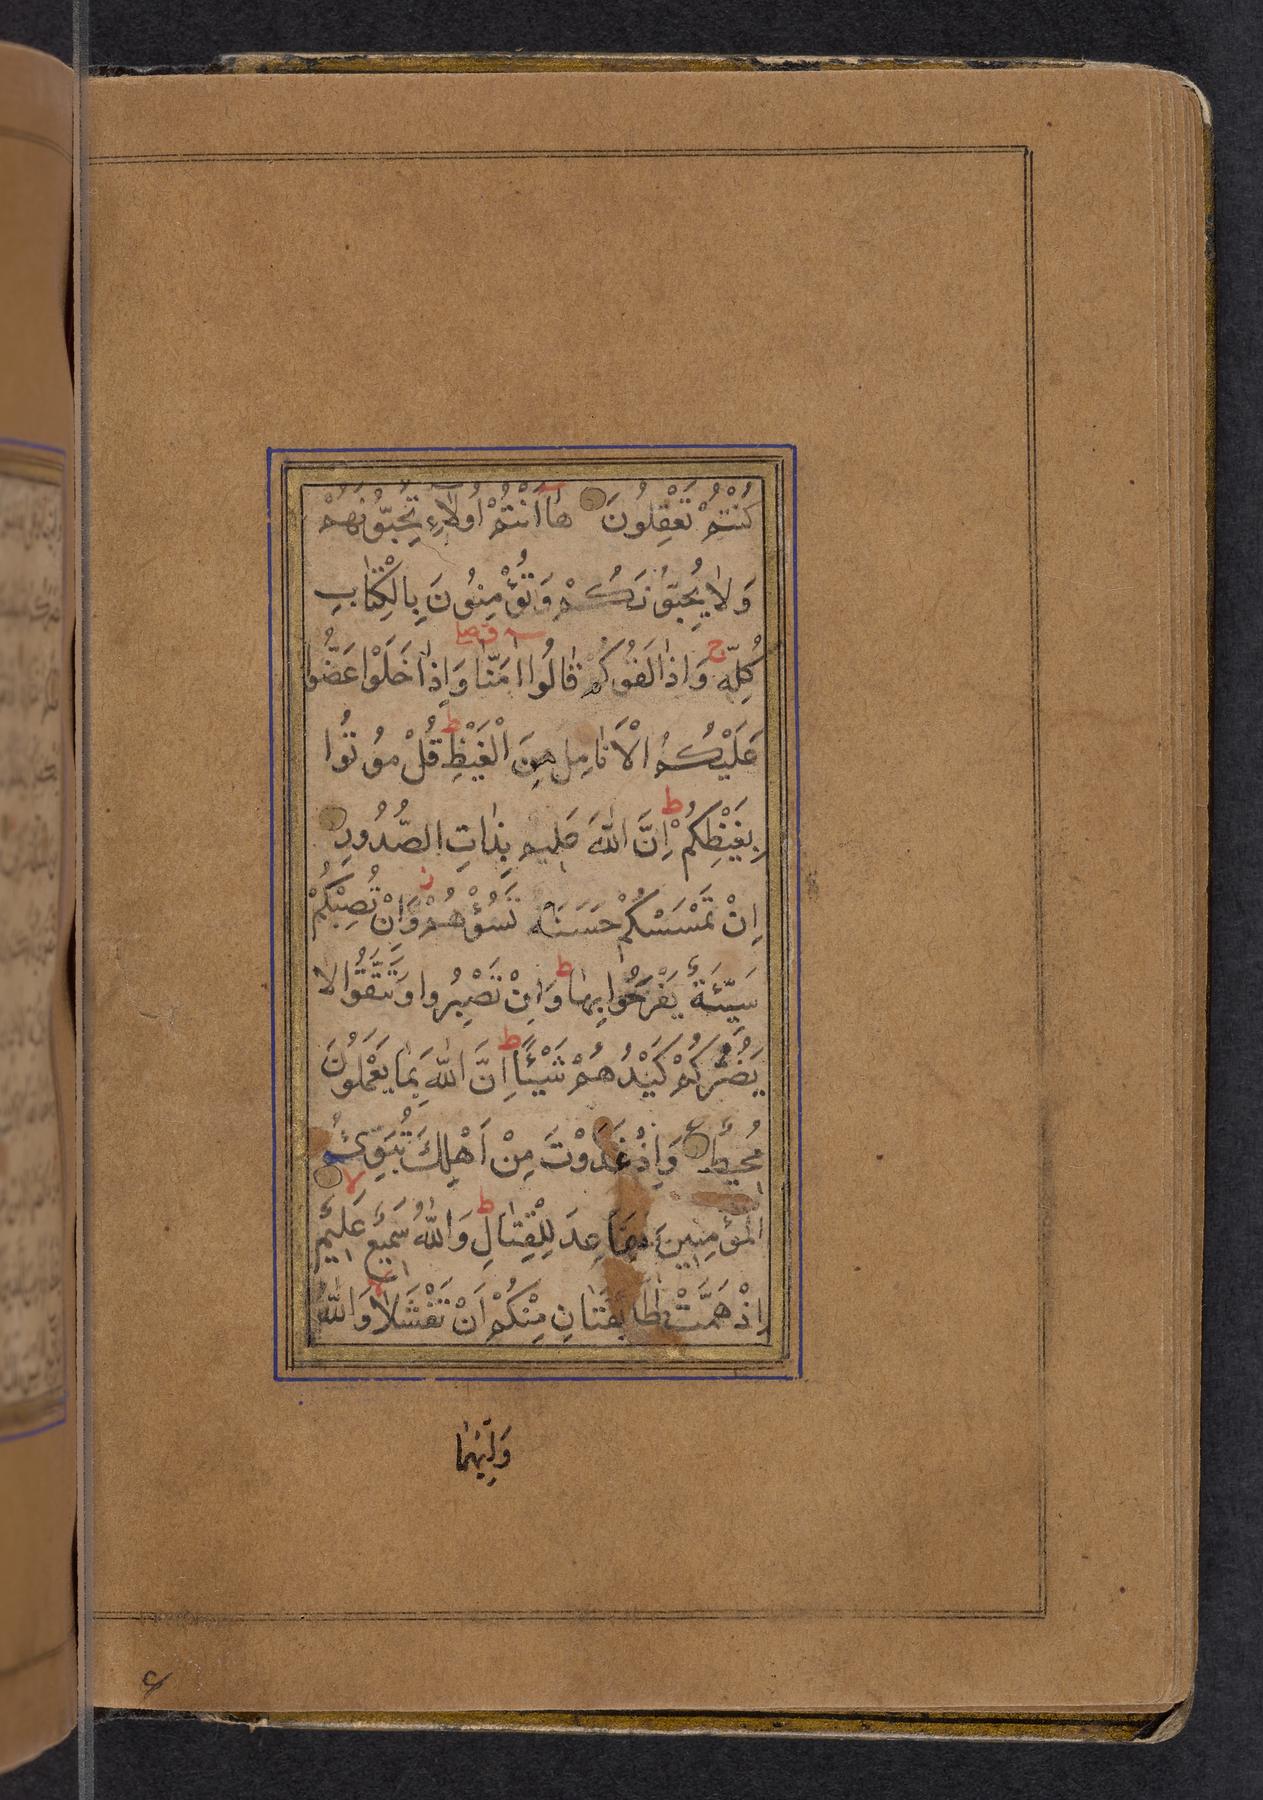 كُنْتُمْ تَعْقِلُونَ هٰٓا اَنْتُمْ اُولٰٓاءِ تُحِبُّونَهُمْ
وَلٰا يُحِبُّونَكُمْ وَتُؤْمِنُونَ بِالْكِتٰابِ
كُلِّهٖ وَاِذٰا لَقُوكُمْ قٰالُوا اٰمَنّٰا وَاِذٰا خَلَوْا عَضُّوا
عَلَيْكُمُ الْاَنٰامِلَ مِنَ الْغَيْظِ قُلْ مُوتُوا
بِغَيْظِكُمْ اِنَّ اللّٰهَ عَلِيمٌ بِذٰاتِ الصُّدُورِ
اِنْ تَمْسَسْكُمْ حَسَنَةٌ تَسُؤْهُمْ وَاِنْ تُصِبْكُمْ
سَيِّئَةٌ يَفْرَحُوا بِهٰا وَاِنْ تَصْبِرُوا وَتَتَّقُوا لا
يَضُرُّكُمْ كَيْدُهُمْ شَيْئًا اِنَّ اللّٰهَ بِمٰا يَعْمَلُونَ
مُحِيطٌ وَاِذْ غَدَوْتَ مِنْ اَهْلِكَ تُبَوِّئُ
الْمُؤْمِنِينَ مَقٰاعِدَ لِلْقِتٰالِ وَاللّٰهُ سَمِيعٌ عَلِيمٌ
اِذْ هَمَّتْ طٰائِفَتٰانِ مِنْكُمْ اَنْ تَفْشَلٰا وَاللّٰهُ
وَلِيُّهُمٰا